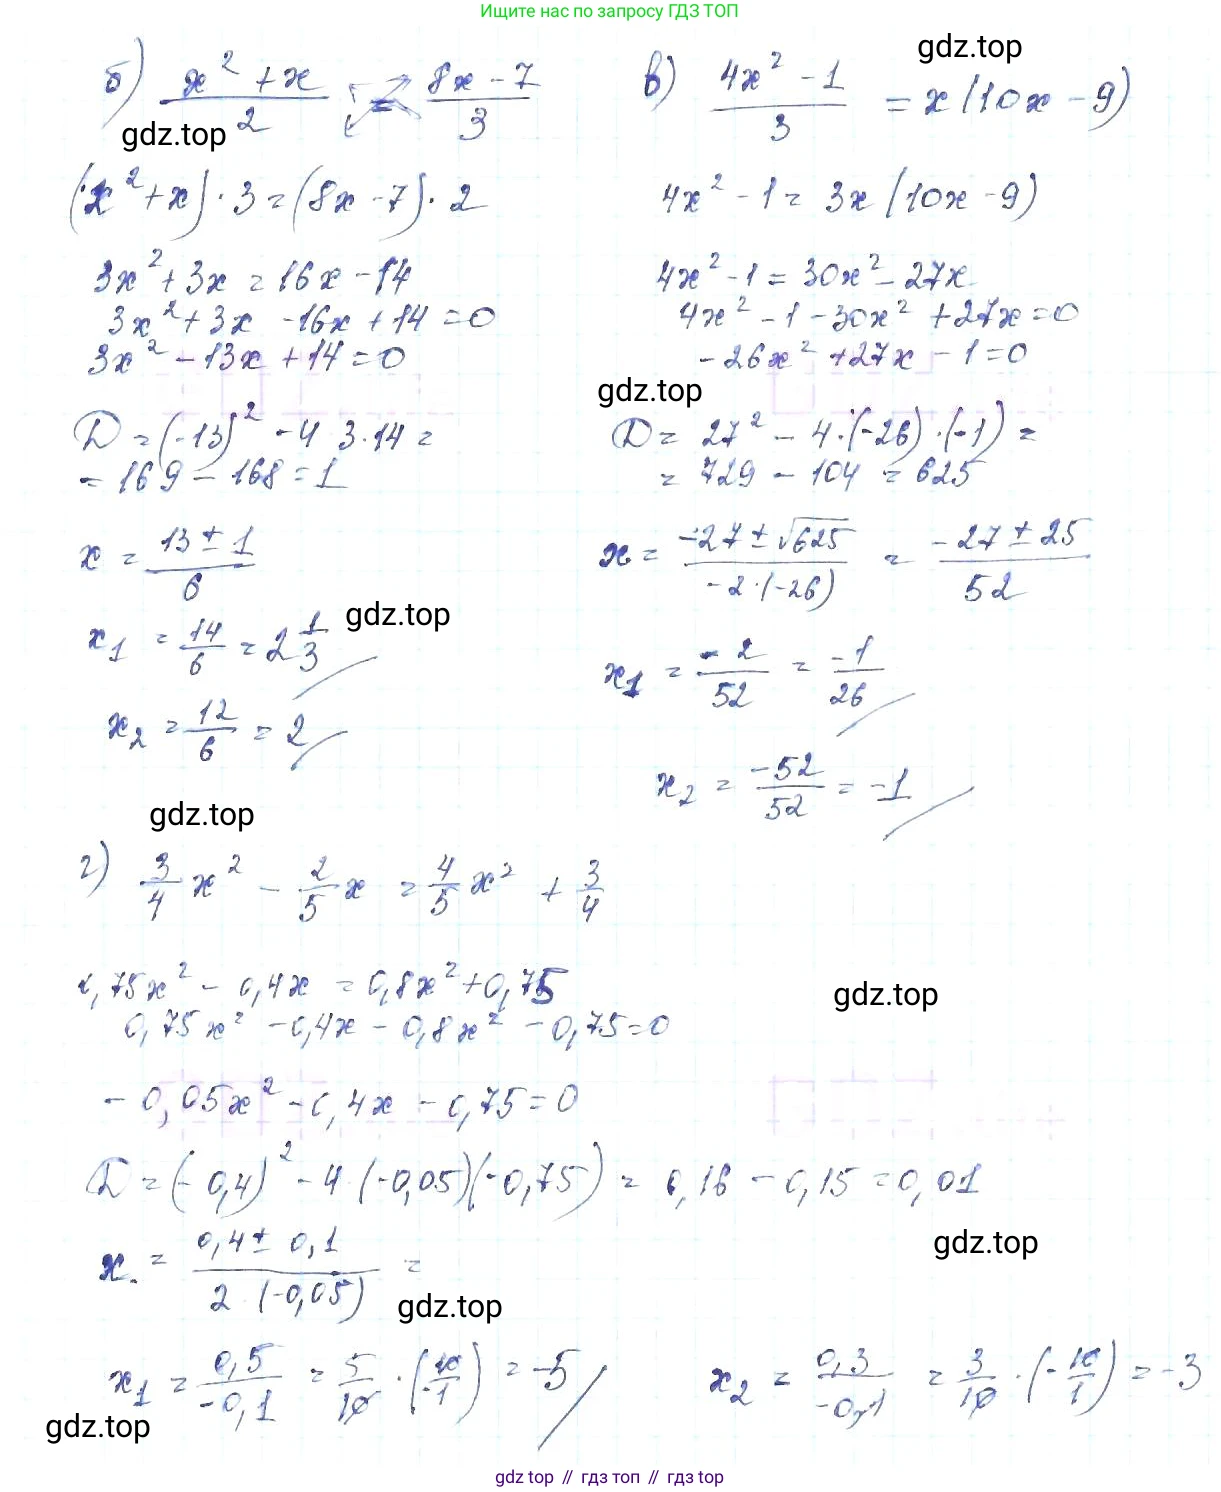 Ищите нас по запросу ГДЗ ТОП
gdz.top
б) (x² + x)/2 = (8x − 7)/3
gdz.top
(x² + x) · 3 = (8x − 7) · 2
3x² + 3x = 16x − 14
3x² + 3x − 16x + 14 = 0
3x² − 13x + 14 = 0
D = (−13)² − 4 3 · 14 =
= 169 − 168 = 1
x = (13 ± 1)/6
gdz.top
x₁ = 14/6 = 2 1/3
x₂ = 12/6 = 2
в) (4x² − 1)/3 = x(10x − 9)
4x² − 1 = 3x(10x − 9)
4x² − 1 = 30x² − 27x
4x² − 1 − 30x² + 27x = 0
−26x² + 27x − 1 = 0
gdz.top
D = 27² − 4 · (−26) · (−1) =
= 729 − 104 = 625
x = (−27 ± √625)/(−2 · (−26)) = (−27 ± 25)/52
x₁ = −2/52 = −1/26
x₂ = −52/52 = −1
gdz.top
г) 3/4 x² − 2/5 x = 4/5 x² + 3/4
0,75x² − 0,4x = 0,8x² + 0,75
gdz.top
0,75x² − 0,4x − 0,8x² − 0,75 = 0
− 0,05x² − 0,4x − 0,75 = 0
D = (− 0,4)² − 4 · (−0,05)(−0,75) = 0,16 − 0,15 = 0,01
gdz.top
x = (0,4 ± 0,1)/(2 · (−0,05)) =
gdz.top
x₁ = 0,5/−0,1 = 5/10 · (10/−1) = −5
x₂ = 0,3/−0,1 = 3/10 · (−10/1) = −3
gdz.top
gdz top // гдз топ // gdz top